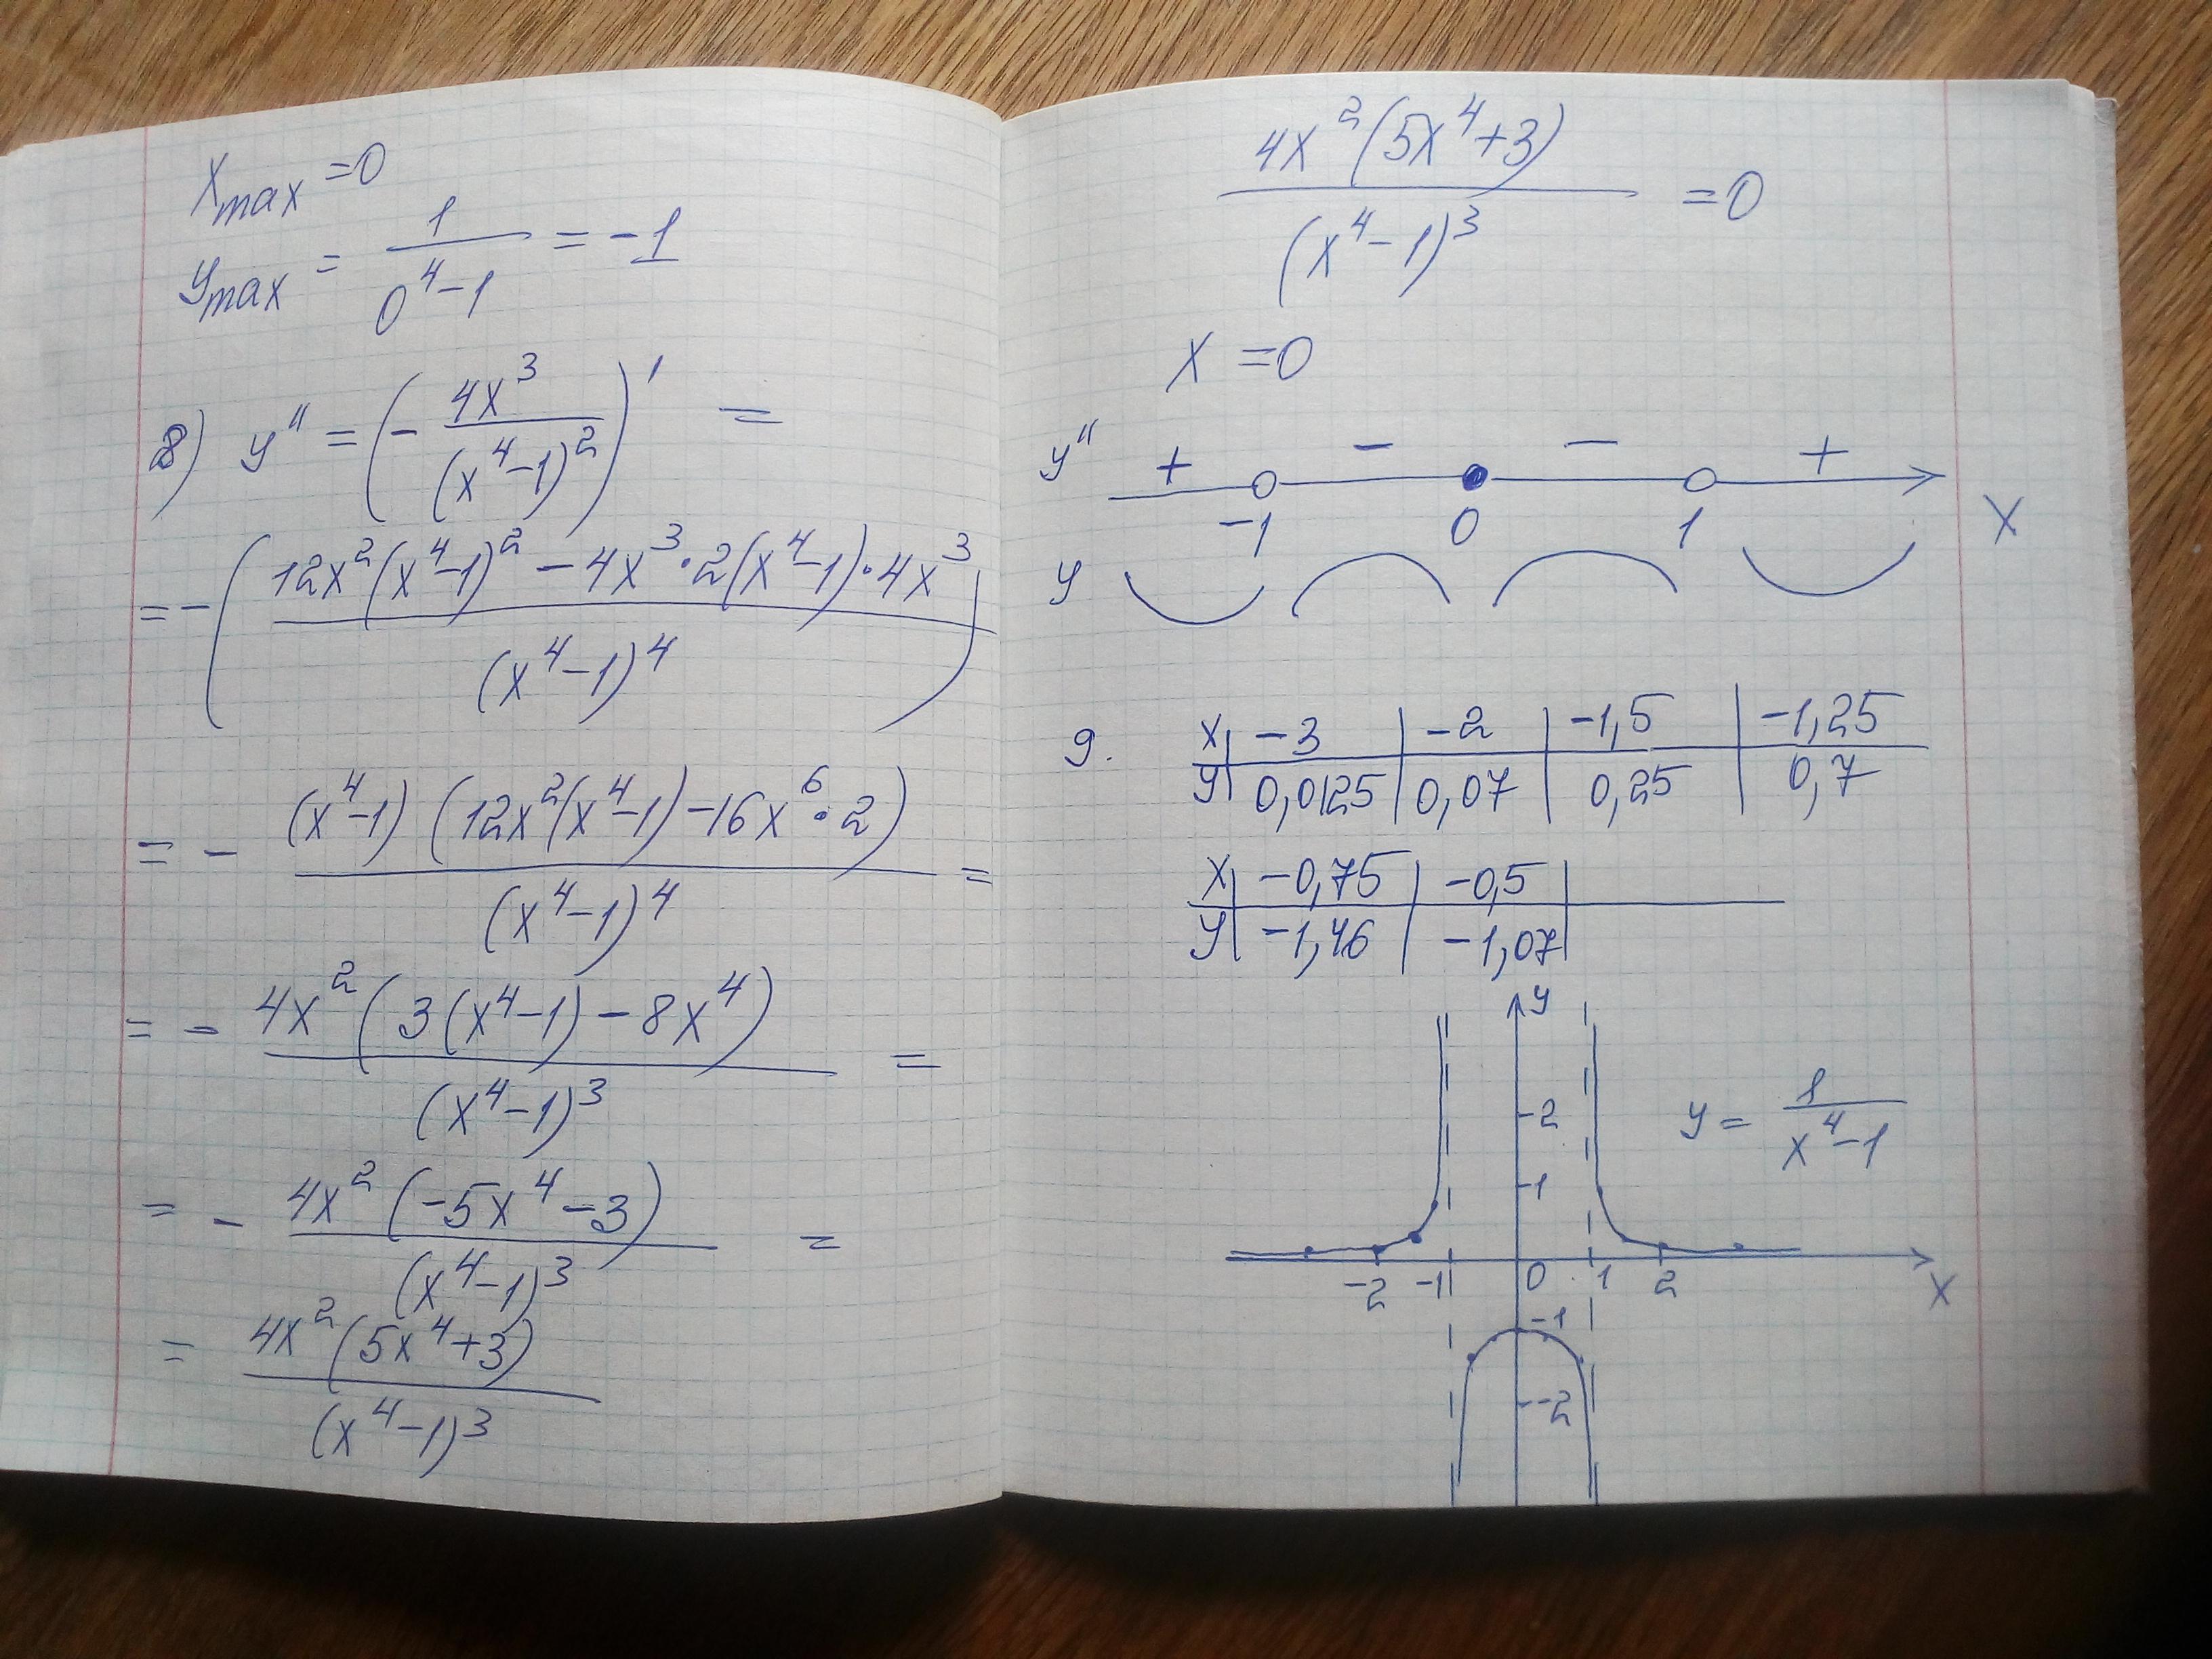 x_max = 0
y_max = 1/(0^4-1) = -1
8) y'' = (- 4x^3/(x^4-1)^2)' =
= -(12x^2(x^4-1)^2 - 4x^3·2(x^4-1)·4x^3)/(x^4-1)^4
= - (x^4-1)(12x^2(x^4-1)-16x^6·2)/(x^4-1)^4 =
= - 4x^2(3(x^4-1)-8x^4)/(x^4-1)^3 =
= - 4x^2(-5x^4-3)/(x^4-1)^3 =
= 4x^2(5x^4+3)/(x^4-1)^3
4x^2(5x^4+3)/(x^4-1)^3 = 0
x = 0
y'' + - - +
-1 0 1 x
y
9. x | -3 | -2 | -1,5 | -1,25
y | 0,0125 | 0,07 | 0,25 | 0,7
x | -0,75 | -0,5 |
y | -1,46 | -1,07 |
y
2
y = 1/(x^4-1)
1
-2 -1 0 1 2 x
-1
-2